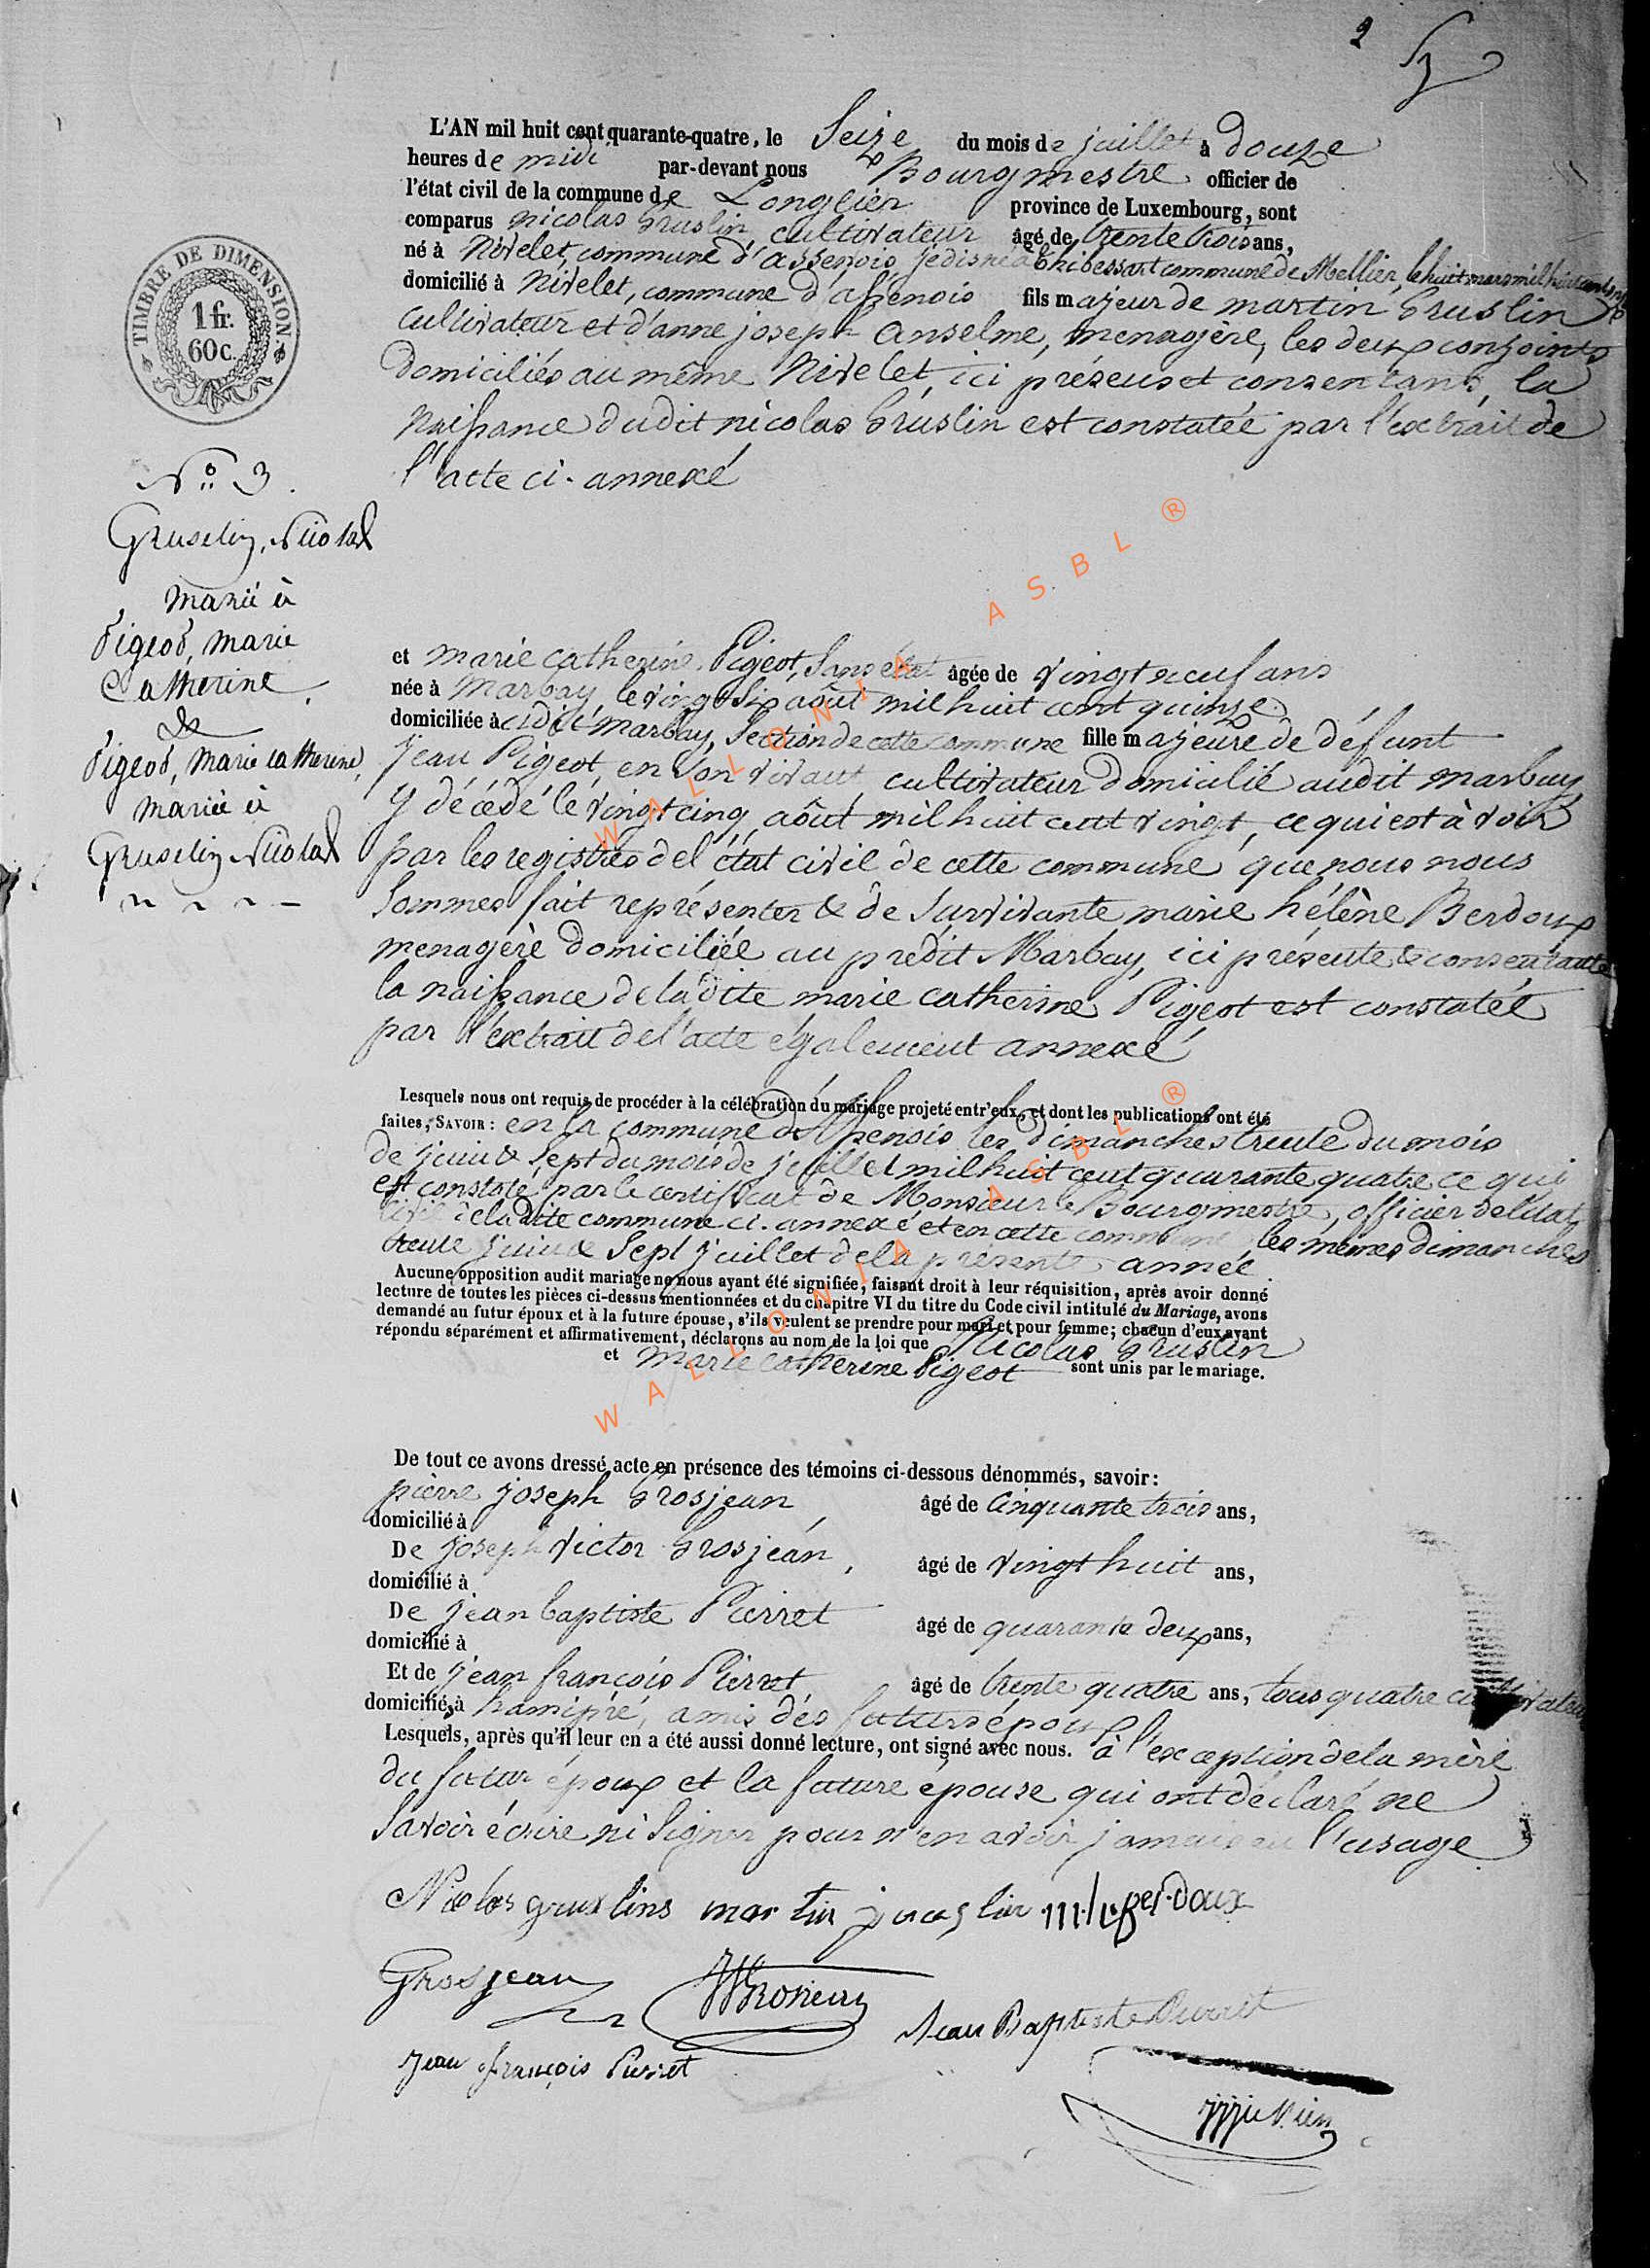 2
L'AN mil huit cent quarante-quatre, le Seize du mois de juillet à douze
heures de midi par-devant nous Bourgmestre officier de
l'état civil de la commune de Longlier province de Luxembourg, sont
comparus nicolas Gruslin, cultivateur âgé de trente trois ans,
né à Nivelet, commune d'assenois je dis né à thibessart commune de Mellier, le huit mars mil huit cent
domicilié à Nivelet, commune d'assenois fils majeur de martin Gruslin
cultivateur et d'anne joseph anselme, menagère, les deux conjoints
domiciliés au même Nivelet, ici présens et consentans, la
naissance dudit nicolas Gruslin est constatée par l'extrait de
l'acte ci-annexé
TIMBRE DE DIMENSION.
1 fr.
60 c.
N° 3.
Gruselin, Nicolas
marié à
Pigeot, marie
Catherine
&
Pigeot, Marie Catherine,
mariée à
Gruselin Nicolas
et marie catherine Pigeot, Sans état âgée de vingt neuf ans
née à Marbay le vingt six août mil huit cent quinze
domiciliée à Marbay, Section de cette commune fille majeure de défunt
jean Pigeot, en Son vivant cultivateur domicilié audit marbay
y décédé le vingt cinq août mil huit cent vingt, ce qui est à voir
par les registres de l'état civil de cette commune que nous nous
Sommes fait représenter & de Survivante marie hélène Berdoux
menagère domiciliée au prédit Marbay, ici présente & consentante
la naissance de la dite marie catherine Pigeot est constatée
par l'extrait de l'acte également annexé
Lesquels nous ont requis de procéder à la célébration du mariage projeté entr'eux, et dont les publications ont été
faites, SAVOIR : en la commune d'Assenois les dimanches trente du mois
de juin & Sept du mois de juillet mil huit cent quarante quatre ce qui
est constaté par le certificat de Monsieur le Bourgmestre, officier de l'état
civil de la dite commune ci-annexé et en cette commune les mêmes dimanches
trente juin & Sept juillet de la présente année
Aucune opposition audit mariage ne nous ayant été signifiée, faisant droit à leur réquisition, après avoir donné
lecture de toutes les pièces ci-dessus mentionnées et du chapitre VI du titre du Code civil intitulé du Mariage, avons
demandé au futur époux et à la future épouse, s'ils veulent se prendre pour mari et pour femme; chacun d'eux ayant
répondu séparément et affirmativement, déclarons au nom de la loi que Nicolas Gruslin
et Marie catherine Pigeot sont unis par le mariage.
De tout ce avons dressé acte en présence des témoins ci-dessous dénommés, savoir:
pierre joseph Grosjean âgé de cinquante trois ans,
domicilié à
De joseph victor Grosjean, âgé de vingt huit ans,
domicilié à
De jean baptiste Pierret âgé de quarante deux ans,
domicilié à
Et de jean françois Pierret âgé de trente quatre ans, tous quatre cultivateurs
domiciliés à hamipré, amis des futurs époux
Lesquels, après qu'il leur en a été aussi donné lecture, ont signé avec nous. à l'exception de la mère
du futur époux et la future épouse qui ont déclaré ne
Savoir écrire ni Signer pour n'en avoir jamais eu l'usage
Nicolas gruslins martin gruslin berdoux
Grosjean Jean Baptiste Pierret
Jean françois Pierret
WALLONIA ASBL ®
WALLONIA ASBL ®